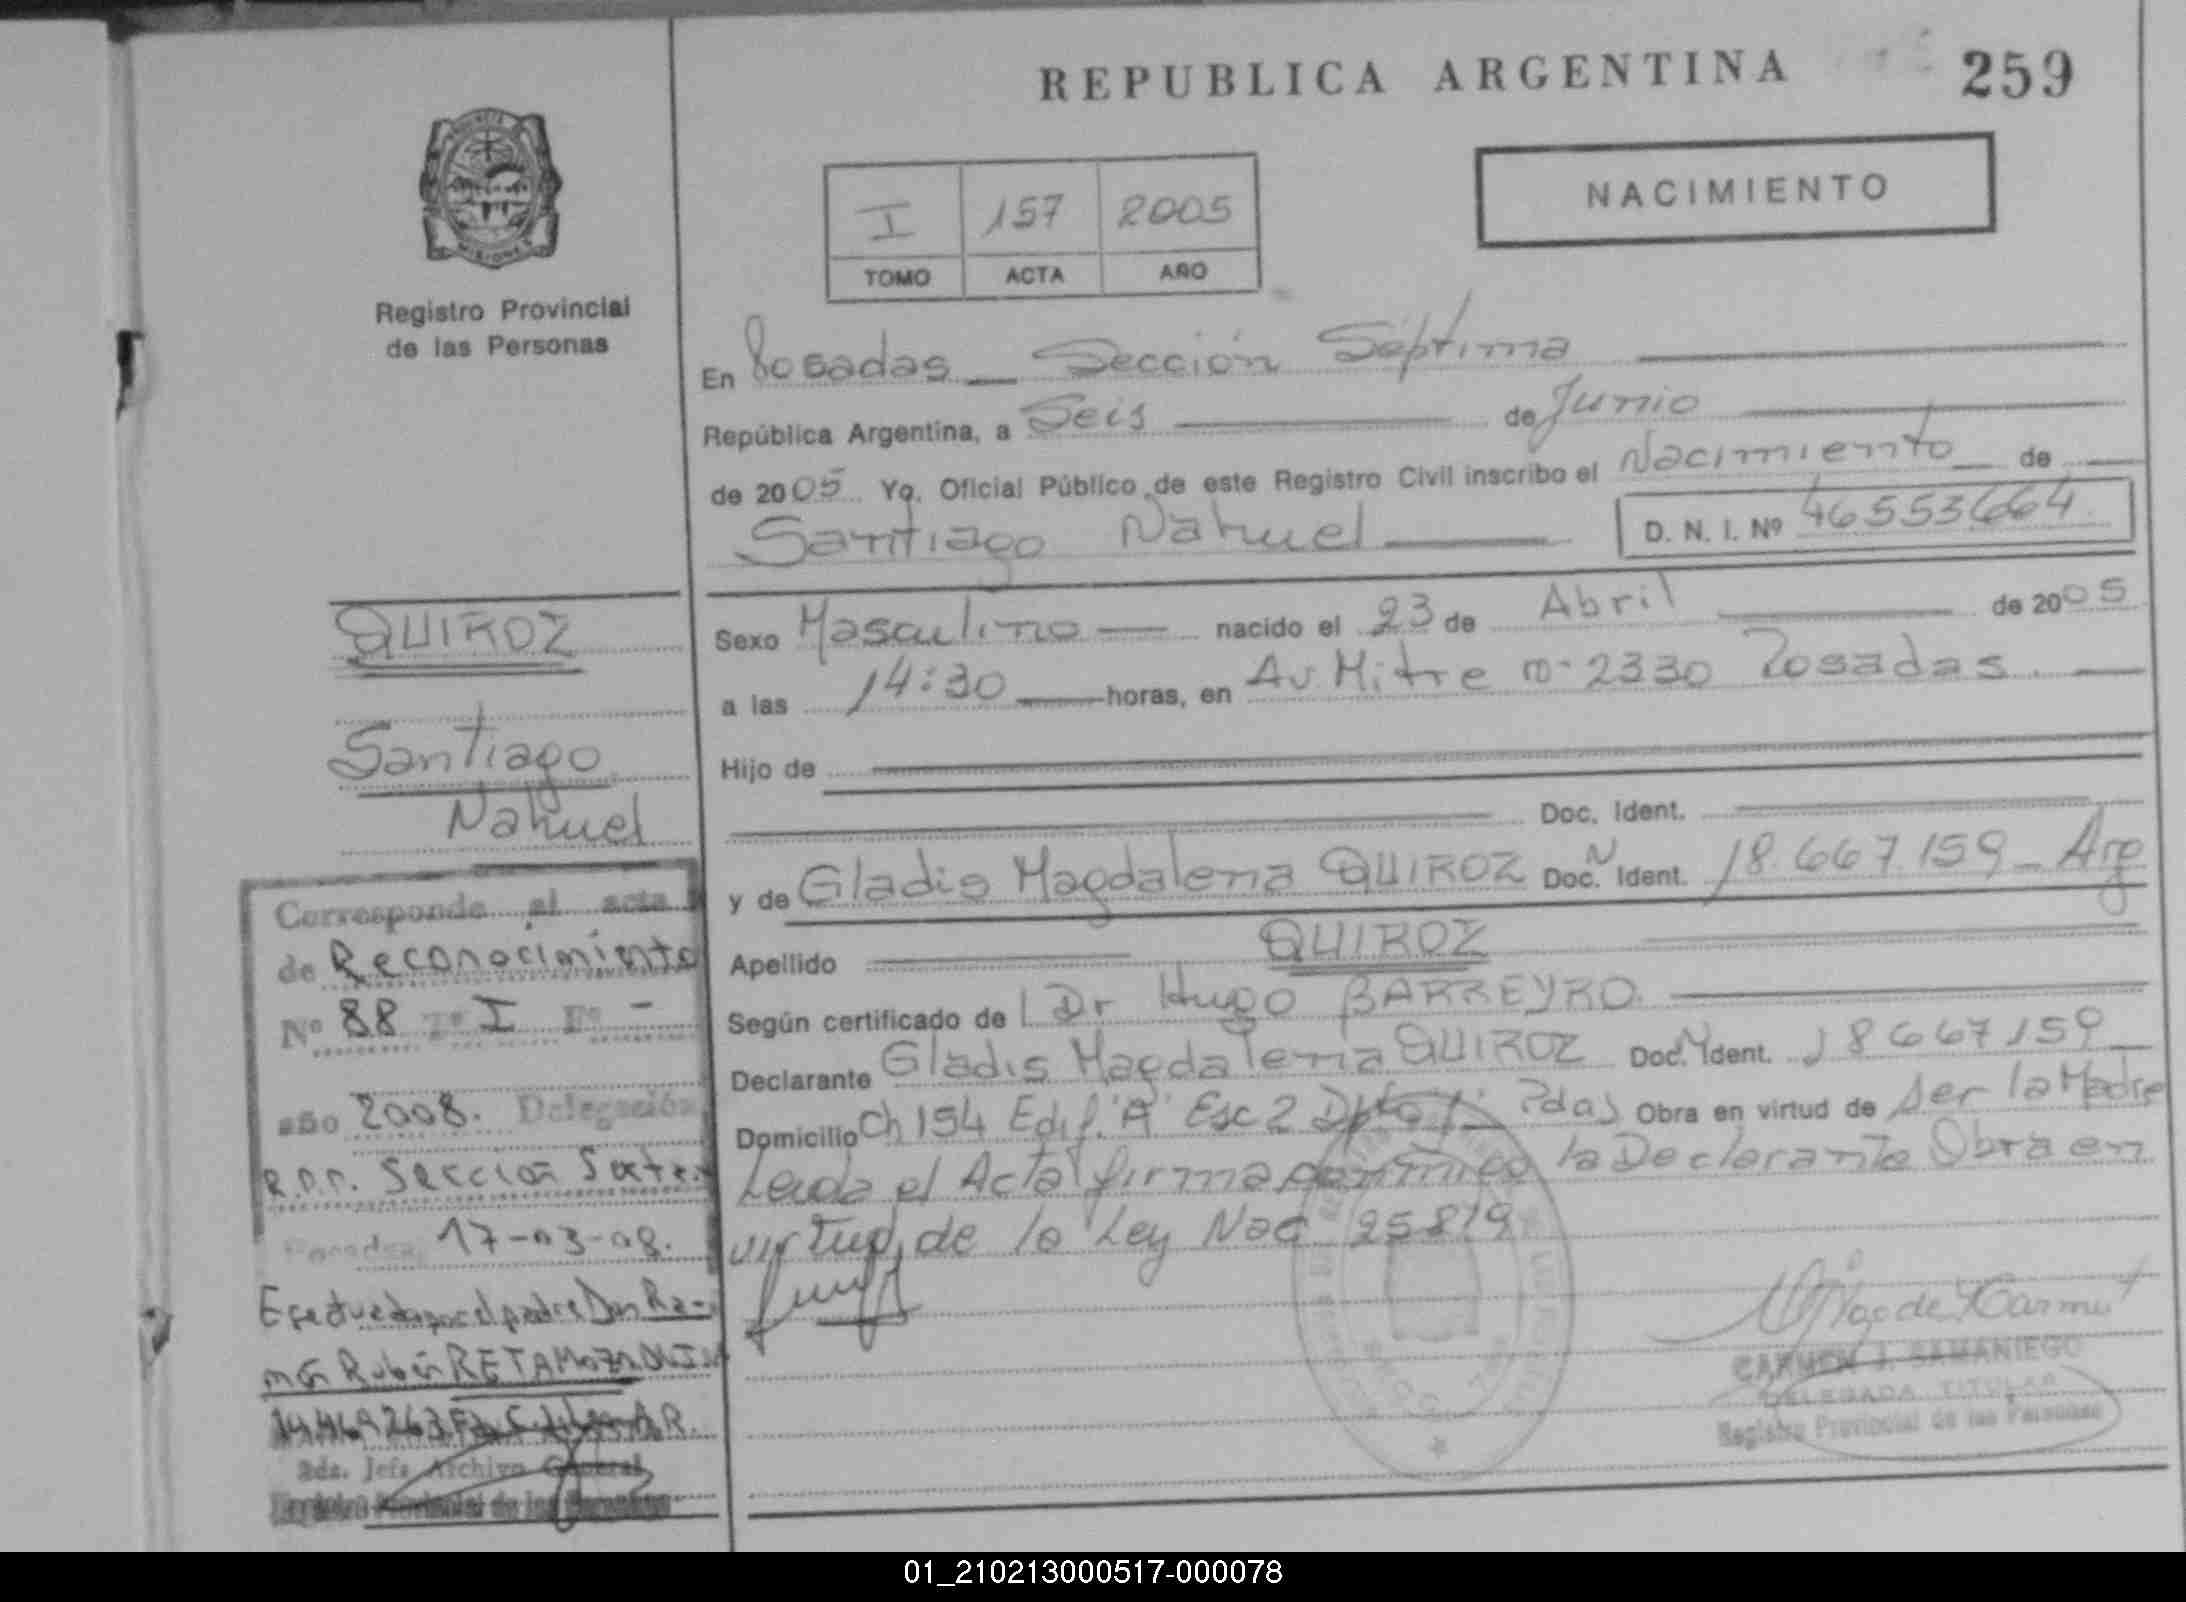 REPUBLICA ARGENTINA 259
NACIMIENTO
I 157 2005
TOMO ACTA AÑO
PROVINCIA
MISIONES
Registro Provincial
de las Personas
En Posadas Sección Séptima
República Argentina, a Seis de Junio
de 2005 Yo, Oficial Público de este Registro Civil inscribo el Nacimiento de
Santiago Nahuel D. N. I. Nº 46553664
QUIROZ
Santiago
Nahuel
Sexo Masculino nacido el 23 de Abril de 2005
a las 14:30 horas, en Av. Mitre nº 2330 Posadas
Hijo de
Doc. Ident.
y de Gladis Magdalena QUIROZ Doc. N Ident. 18.667.159 Arg
Apellido QUIROZ
Según certificado del Dr Hugo BARREYRO
Declarante Gladis Magdalena QUIROZ Doc. N Ident. 18667159
Domicilio Ch 154 Edif. "A" Esc 2 Dpto Pdas Obra en virtud de ser la Madre
Leida el Acta firma conmigo la Declarante Obra en
virtud de la Ley Nac 25819
Corresponde al acta
de Reconocimiento
Nº 88 Tº I Fº -
año 2008. Delegación
R.P.P. Sección Sexta
Posadas, 17-03-08.
Efectuado por el padre Don Ra-
món Rubén RETAMOZO DNI Nº
14.469.263
2da. Jefa Archivo General
Registro Provincial de las Personas
CARMEN J. SAMANIEGO
DELEGADA TITULAR
Registro Provincial de las Personas
01_210213000517-000078